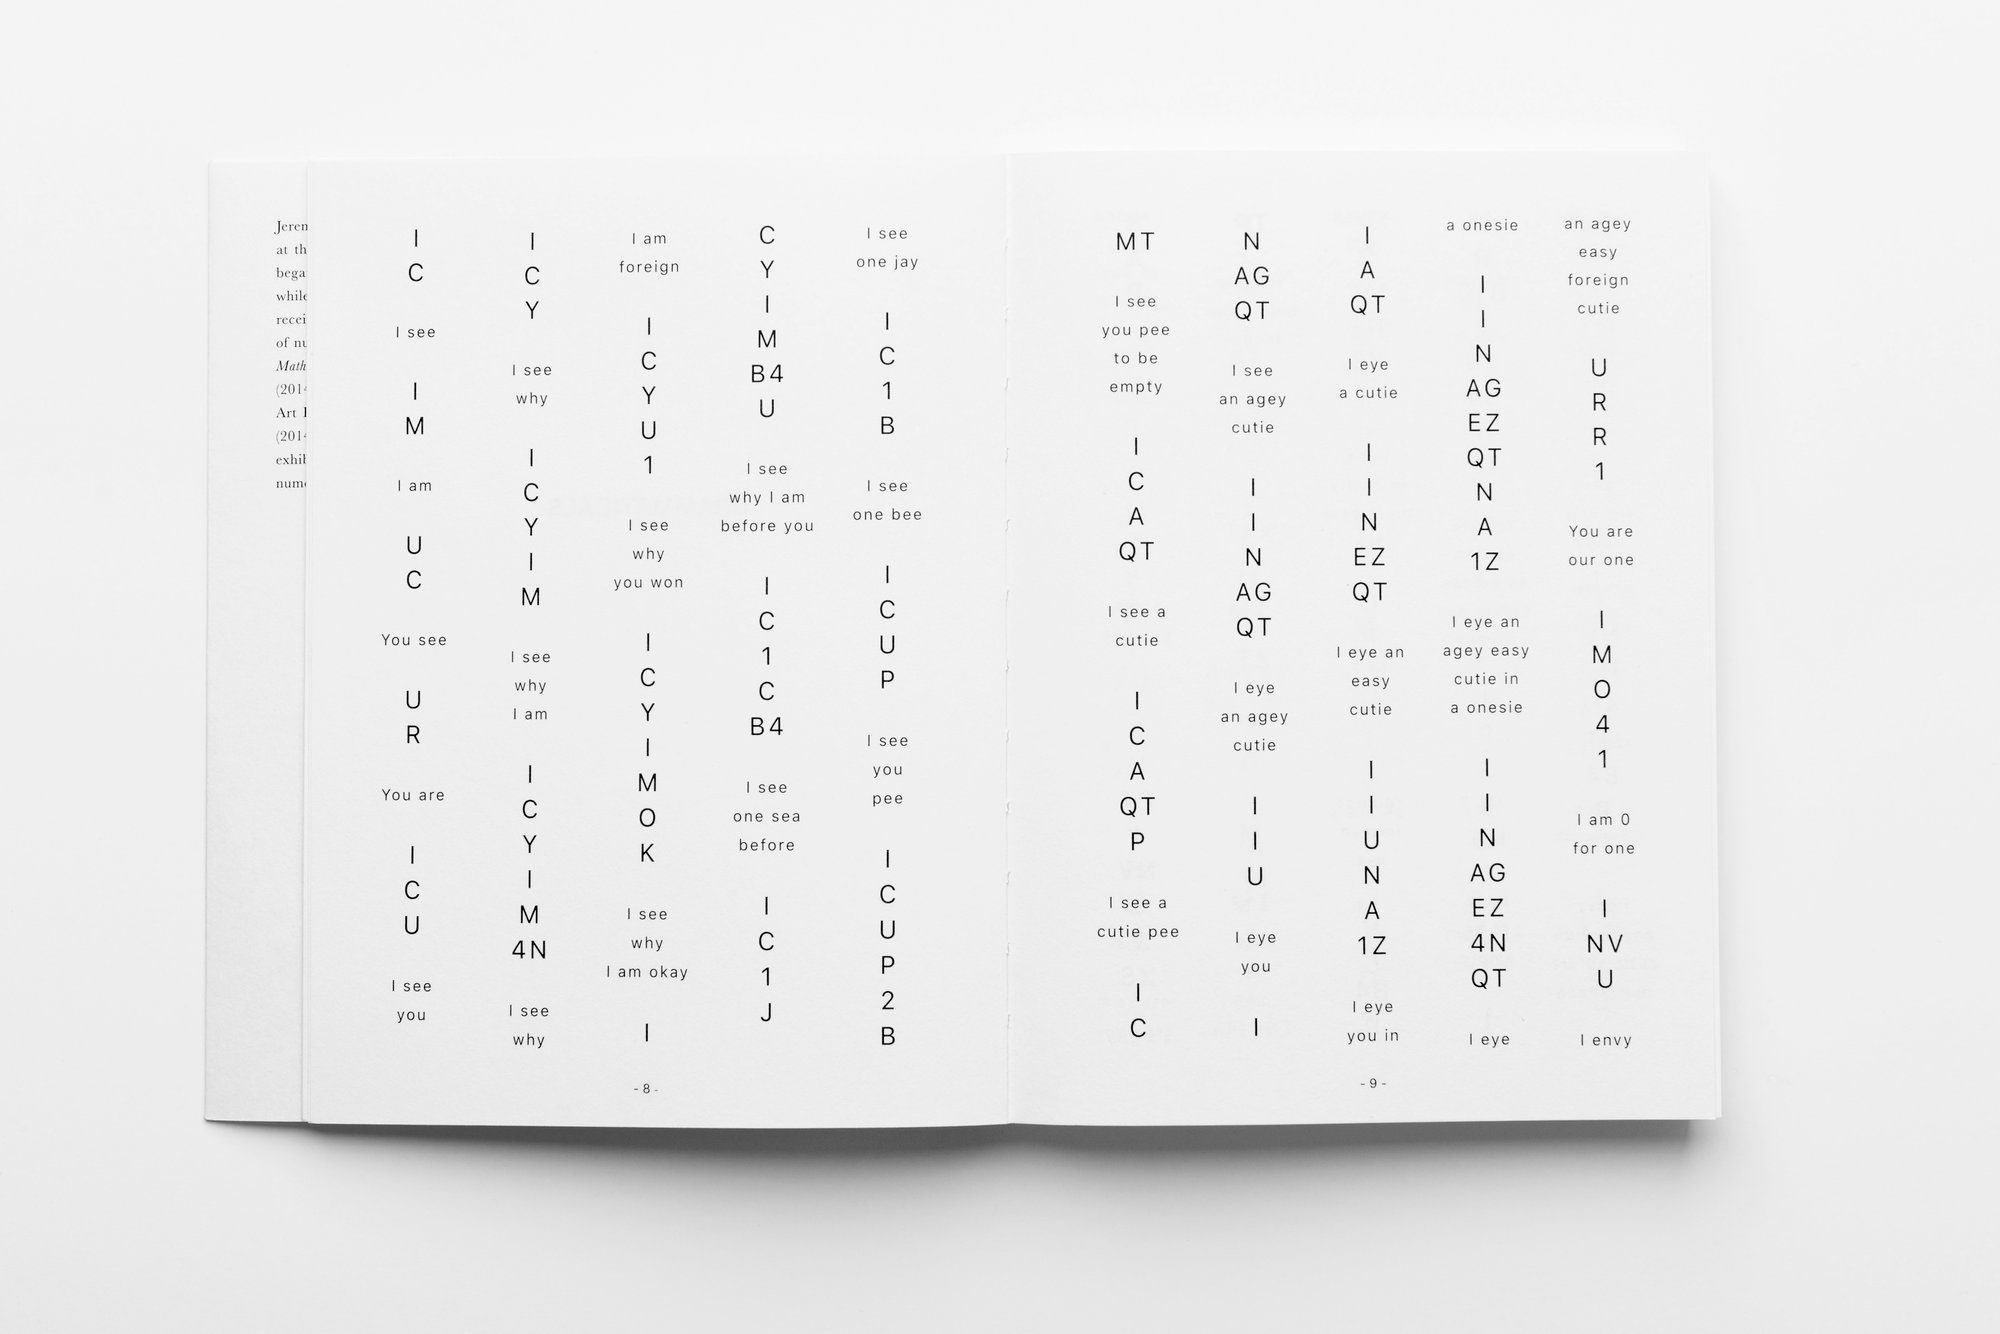 Jerem
at th
bega
while
recei
of nu
Math
(2014
Art
(2014
exhib
nume
I
C
I see
I
M
I am
U
C
You see
U
R
You are
I
C
U
I see
you
I
C
Y
I see
why
I
C
Y
I
M
I see
why
I am
I
C
Y
I
M
4N
I see
why
I am
foreign
I
C
Y
U
1
I see
why
you won
I
C
Y
I
M
O
K
I see
why
I am okay
I
C
Y
I
M
B4
U
I see
why I am
before you
I
C
1
C
B4
I see
one sea
before
I
C
1
J
I see
one jay
I
C
1
B
I see
one bee
I
C
U
P
I see
you
pee
I
C
U
P
2
B
-8-
MT
I see
you pee
to be
empty
I
C
A
QT
I see a
cutie
I
C
A
QT
P
I see a
cutie pee
I
C
N
AG
QT
I see
an agey
cutie
I
I
N
AG
QT
I eye
an agey
cutie
I
I
U
I eye
you
I
I
A
QT
I eye
a cutie
I
I
N
EZ
QT
I eye an
easy
cutie
I
I
U
N
A
1Z
I eye
you in
a onesie
I
I
N
AG
EZ
QT
N
A
1Z
I eye an
agey easy
cutie in
a onesie
I
I
N
AG
EZ
4N
QT
I eye
an agey
easy
foreign
cutie
U
R
R
1
You are
our one
I
M
O
4
1
I am 0
for one
I
NV
U
I envy
-9-